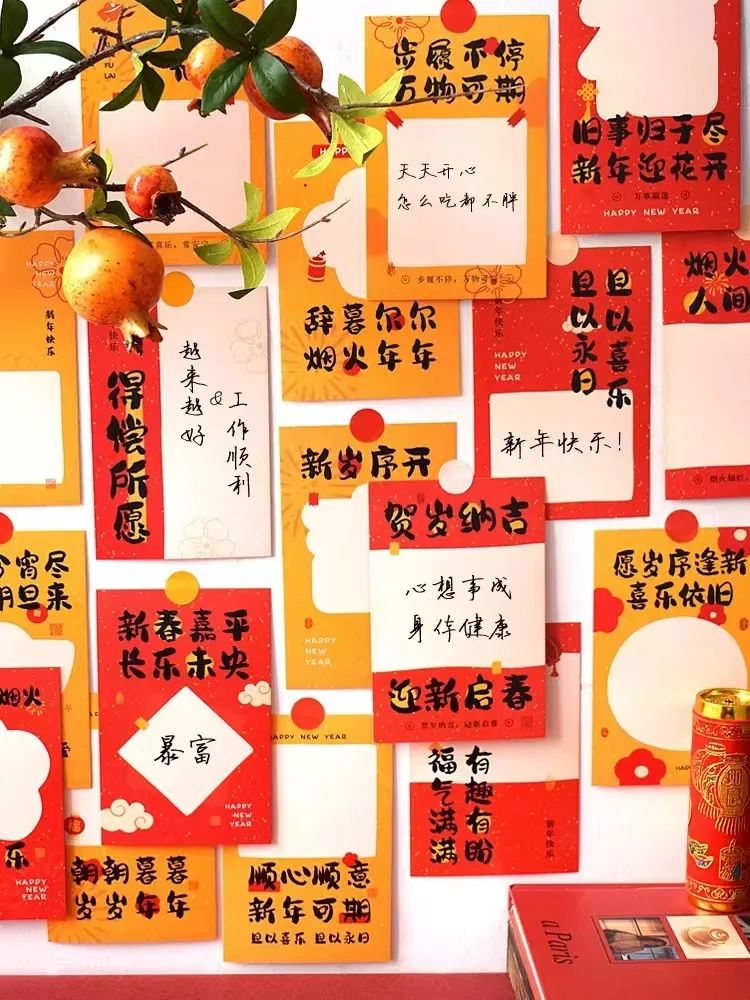 步履不停
万物可期
天天开心
怎么吃都不胖
步履不停，万物可期
旧事归于尽
新年迎花开
万事顺遂
HAPPY NEW YEAR
喜乐，常安宁
HAPPY
辞暮尔尔
烟火年年
HAPPY
NEW
YEAR
新年快乐
快乐
得偿所愿
越来越好
&
工作顺利
新年快乐
且以喜乐
且以永日
HAPPY
NEW
YEAR
新年快乐！
烟火
人间
新岁序开
HAPPY
NEW
YEAR
贺岁纳吉
心想事成
身体健康
迎新启春
贺岁纳吉，迎新启春
愿岁序逢新
喜乐依旧
今宵尽
明旦来
新春嘉平
长乐未央
暴富
HAPPY
NEW
YEAR
烟火
乐
HAPPY
NEW
YEAR
HAPPY NEW YEAR
顺心顺意
新年可期
且以喜乐 且以永日
有趣有盼
福气满满
新年快乐
朝朝暮暮
岁岁年年
a Paris